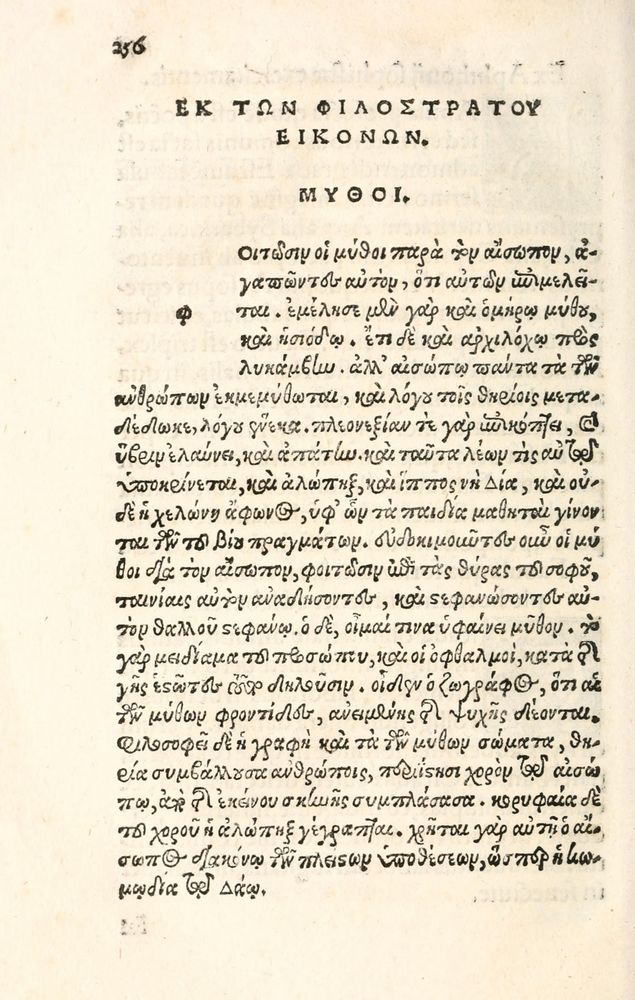 256
ΕΚ ΤΩΝ ΦΙΛΟΣΤΡΑΤΟΥ
ΕΙΚΟΝΩΝ.
ΜΥΘΟΙ.
Οιτῶσιν οἱ μῦθοι παρὰ τὸν αἴσωπον, ἀ-
γαπῶντες αὐτὸν, ὅτι αὐτῶν ἐπιμελεῖ-
φ ται. ἐμέλησε μὲν γὰρ καὶ ὁμήρῳ μύθου,
καὶ ἡσιόδῳ. ἔτι δὲ καὶ ἀρχιλόχῳ πρὸς
λυκάμβην. ἀλλ' αἰσώπῳ πάντα τὰ τῶν
ἀνθρώπων ἐκμεμύθωται, καὶ λόγου τοῖς θηρίοις μετα-
δέδωκε, λόγου ἕνεκα. πλεονεξίαν τε γὰρ ἐπικόπτει, καὶ
ὕβριν ἐλαύνει, καὶ ἀπάτην. καὶ ταῦτα λέων τὶς αὐτῷ
ὑποκρίνεται, καὶ ἀλώπηξ, καὶ ἵππος νὴ Δία, καὶ οὐ-
δὲ ἡ χελώνη ἄφωνος, ὑφ' ὧν τὰ παιδία μαθηταὶ γίνον
ται τῶν τοῦ βίου πραγμάτων. εὐδοκιμοῦντες οὖν οἱ μῦ
θοι διὰ τὸν αἴσωπον, φοιτῶσιν ἐπὶ τὰς θύρας τοῦ σοφοῦ,
ταινίαις αὐτὸν ἀναδήσοντες, καὶ στεφανώσοντες αὐ-
τὸν θαλλοῦ στεφάνῳ. ὁ δὲ, οἶμαί τινα ὑφαίνει μῦθον. τὸ
γὰρ μειδίαμα τοῦ προσώπου, καὶ οἱ ὀφθαλμοὶ, κατὰ τῆς
γῆς ἑστῶτες τοῦτο δηλοῦσιν. οἶδεν ὁ ζωγράφος, ὅτι αἱ
τῶν μύθων φροντίδες, ἀνειμένης τῆς ψυχῆς δέονται.
Φιλοσοφεῖ δὲ ἡ γραφὴ καὶ τὰ τῶν μύθων σώματα, θη-
ρία συμβάλλουσα ἀνθρώποις, περιΐστησι χορὸν τῷ αἰσώ
πῳ, ἀπὸ τῆς ἐκείνου σκηνῆς συμπλάσασα. κορυφαία δὲ
τοῦ χοροῦ ἡ ἀλώπηξ γέγραπται. χρῆται γὰρ αὐτῇ ὁ αἴ-
σωπος διακόνῳ τῶν πλείστων ὑποθέσεων, ὥσπερ ἡ κω-
μῳδία τῷ Δάῳ.